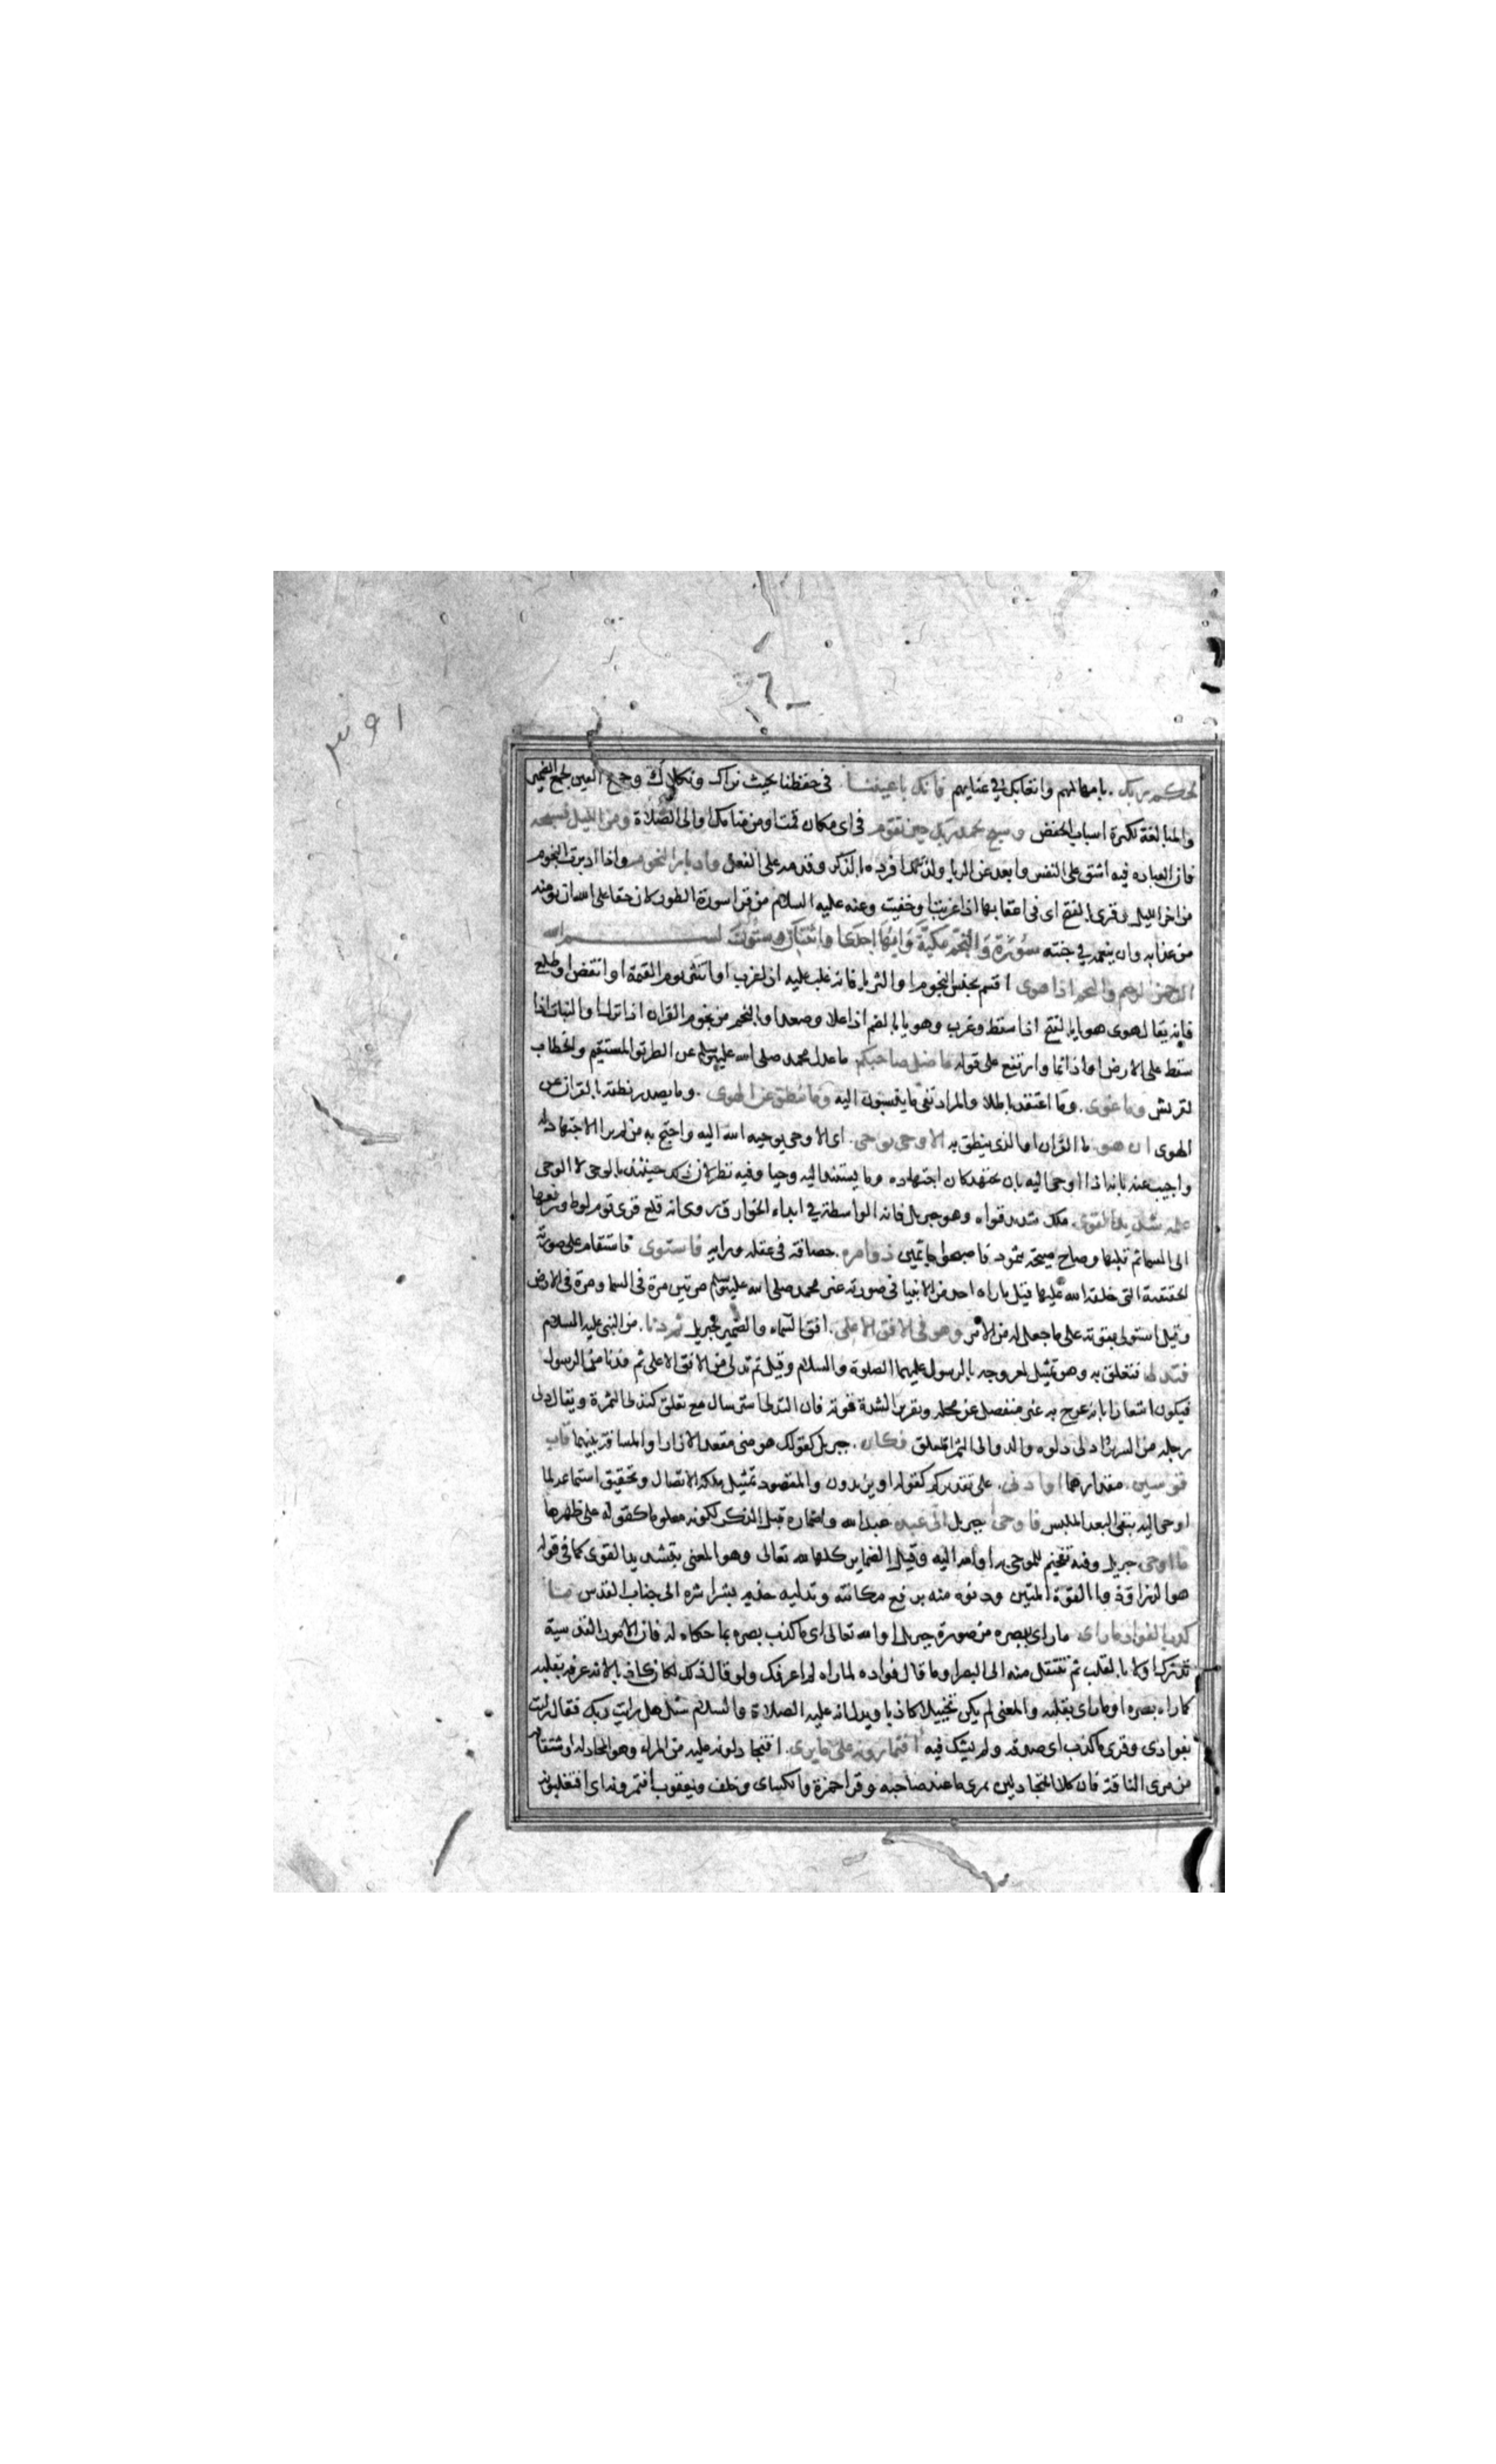 ٣٩١
لحكم ربك بامهالهم وابقائك في عنائهم فانك باعيننا في حفظنا بحيث نراك ونكلاك وجمع العين لجمع الضمير
والمبالغة بكثرة اسباب الحفظ وسبح بحمد ربك حين تقوم في اى مكان قمت او من منامك او الى الصلاة ومن الليل فسبحه
فان العباده فيه اشق على النفس وابعد عن الريا ولذلك افرده بالذكر وقدمه على الفعل وادبار النجوم واذا ادبرت النجوم
من اخر الليل وقرى بالفتح اى فى اعقابها اذا غربت او خفيت وعنه عليه السلام من قرا سورة الطور كان حقا على الله ان يومنه
من عذابه وان ينعمه في جنته سورة والنجم مكية وايها احدى او اثنتان وستون بسم الله
الرحمن الرحيم والنجم اذا هوى اقسم بجنس النجوم او الثريا فانه غلب عليه اذا غرب او انتثر يوم القيمة او انقض او طلع
فانه يقال هوى هويا بالفتح اذا سقط وغرب وهويا بالضم اذا علا وصعد او بالنجم من نجوم القران اذا نزل او النبات اذا
سقط على الارض او اذا نما وارتفع على قوله ما ضل صاحبكم ما عدل محمد صلى الله عليه وسلم عن الطريق المستقيم والخطاب
لقريش وما غوى وما اعتقد باطلا والمراد نفى ما ينسبون اليه وما ينطق عن الهوى وما يصدر نطقه بالقران عن
الهوى ان هو ما القران او الذى ينطق به الا وحى يوحى اى الا وحى يوحيه الله اليه واحتج به من لم ير الاجتهاد له
واجيب عنه بانه اذا اوحى اليه بان يجتهد كان اجتهاده وما يستند اليه وحيا وفيه نظر لان ذلك حينئذ بالوحى لا الوحى
علمه شديد القوى ملك شديد قواه وهو جبريل فانه الواسطة في ابداء الخوارق روى انه قلع قرى قوم لوط ورفعها
الى السما ثم قلبها وصاح صيحة بثمود فاصبحوا جاثمين ذو مره حصافة فى عقله ورايه فاستوى فاستقام على صورته
الحقيقية التى خلقه الله عليها قيل ما راه احد من الانبيا فى صورته غير محمد صلى الله عليه وسلم مرتين مرة فى السما ومرة فى الارض
وقيل استولى بقوته على ما جعل له من الامر وهو فى الافق الاعلى افق السماء والضمير لجبريل ثم دنا من النبى عليه السلام
فتدلى فتعلق به وهو تمثيل لعروجه بالرسول عليهما الصلوة والسلام وقيل ثم تدلى من الافق الاعلى ثم فدنا من الرسول
فيكون اشعارا بانه عرج به غير منفصل عن محله وتقريرا لشدة قوته فان التدلى استرسال مع تعلق كتدلى الثمرة ويقال دلى
رجله من السرير وادلى دلوه والدوالى الثمر المعلق فكان جبريل كقولك هو منى معقد الازار او المسافة بينهما قاب
قوسين مقدارهما او ادنى على تقديركم كقوله او يزيدون والمقصود تمثيل ملكة الاتصال وتحقيق استماعه لما
اوحى اليه بنفى البعد الملبس فاوحى جبريل الى عبده عبد الله واضماره قبل الذكر لكونه معلوما كقوله على ظهرها
ما اوحى جبريل وفيه تفخيم للموحى به او الله اليه وقيل الضماير كلها لله تعالى وهو المعنى بشديد القوى كما فى قوله
هو الرزاق ذو القوة المتين ودنوه منه برفع مكانته وتدليه جذبه بشراشره الى جناب القدس ما
كذب الفواد ما راى ما راى ببصره من صورة جبريل او الله تعالى اى ما كذب بصره بما حكاه له فان الامور القدسية
تدرك اولا بالقلب ثم تنتقل منه الى البصر او ما قال فواده لما راه لم اعرفك ولو قال ذلك لكان كاذبا لانه عرفه بقلبه
كما راه ببصره او ما راى بقلبه والمعنى لم يكن تخييلا كاذبا ويدل انه عليه الصلاة والسلام سئل هل رايت ربك فقال رايت
بفوادى وقرى ما كذب اى صدقه ولم يشك فيه افتمارونه على ما يرى افتجادلونه عليه من المراء وهو المجادلة واشتقاقه
من مرى الناقة فان كلا المتجادلين يمرى ما عند صاحبه وقرا حمزة والكساى وخلف ويعقوب افتمرونه اى افتغلبونه